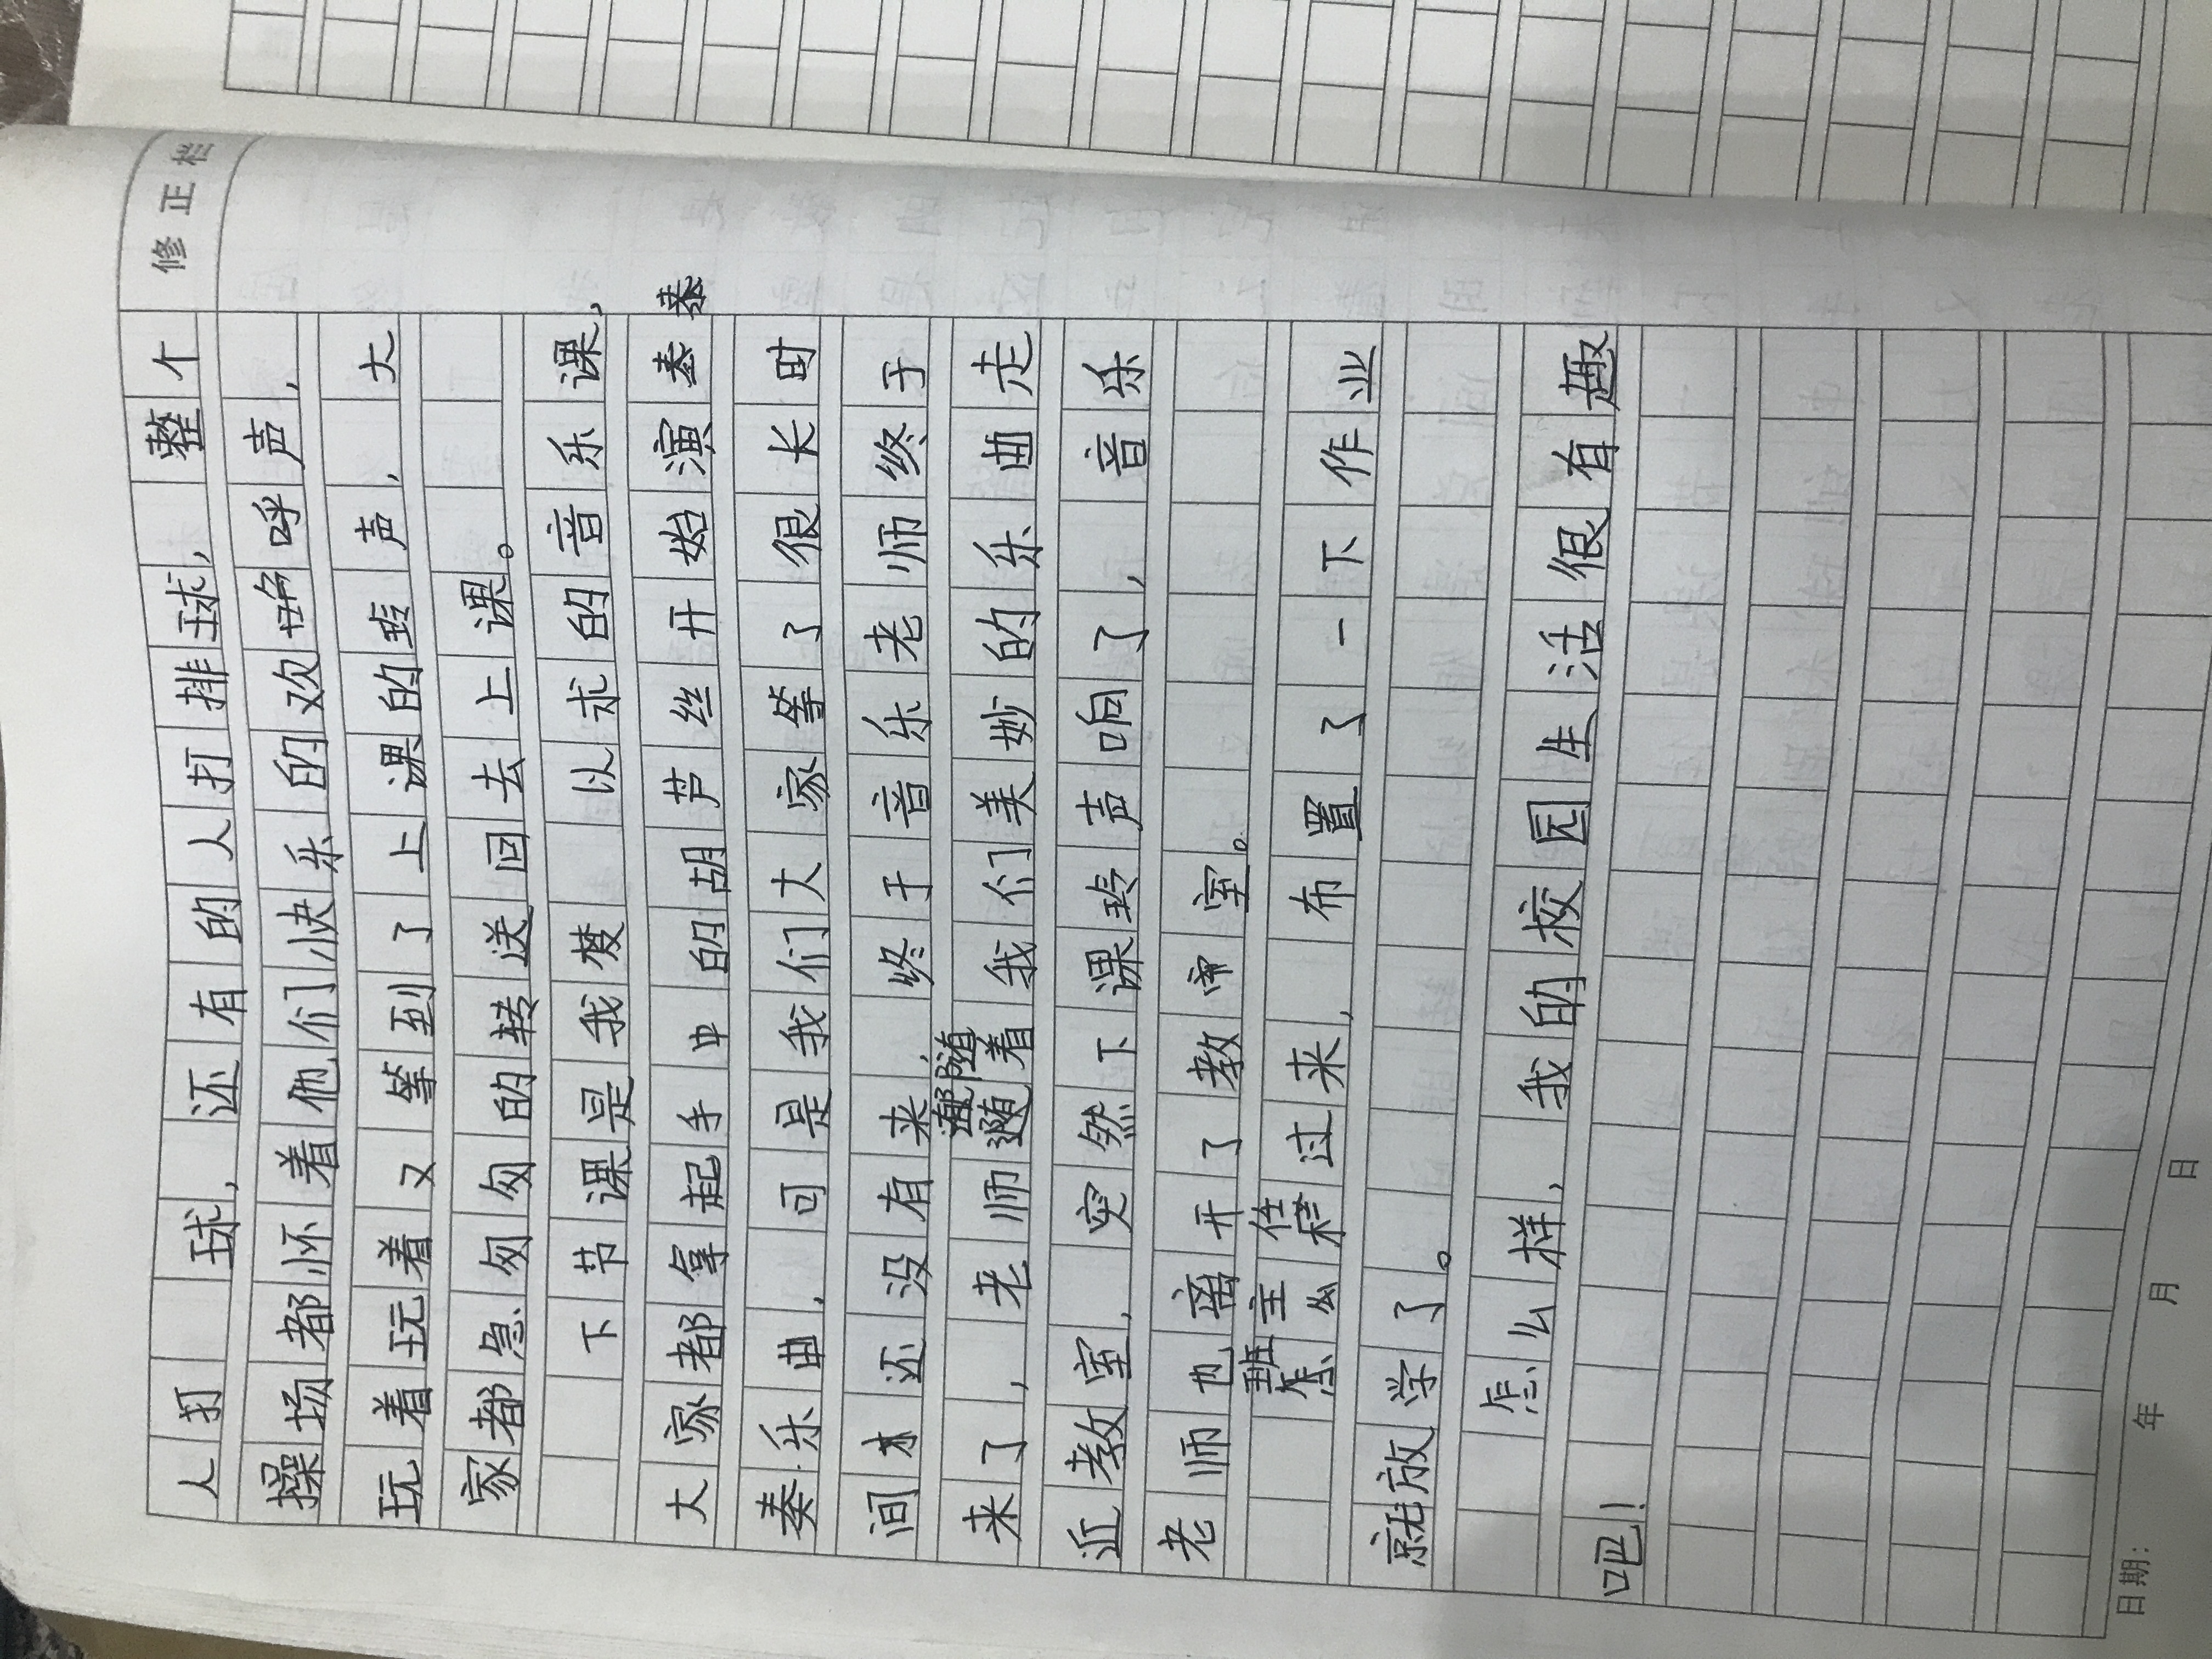 修正栏
人打 球，还有的人打排球，整个
操场都怀着他们快乐的欢 呼声，
玩着玩着又等到了上课的 声，大
家都急匆匆的转送回去上课。
下节课是我梦以求的音乐课，
大家都拿起手中的葫芦丝开始演奏
奏乐曲，可是我们大家等了很长时
间 还没有来，终于音乐老师终于
来了，老师随着我们美妙的乐曲走
近教室，突然下课玲声响了，音乐
老师也离开了教室。
班主任
怎么 过来，布置了一下作业
就放学了。
怎么样，我的校园生活很有趣
吧！
日期： 年 月 日